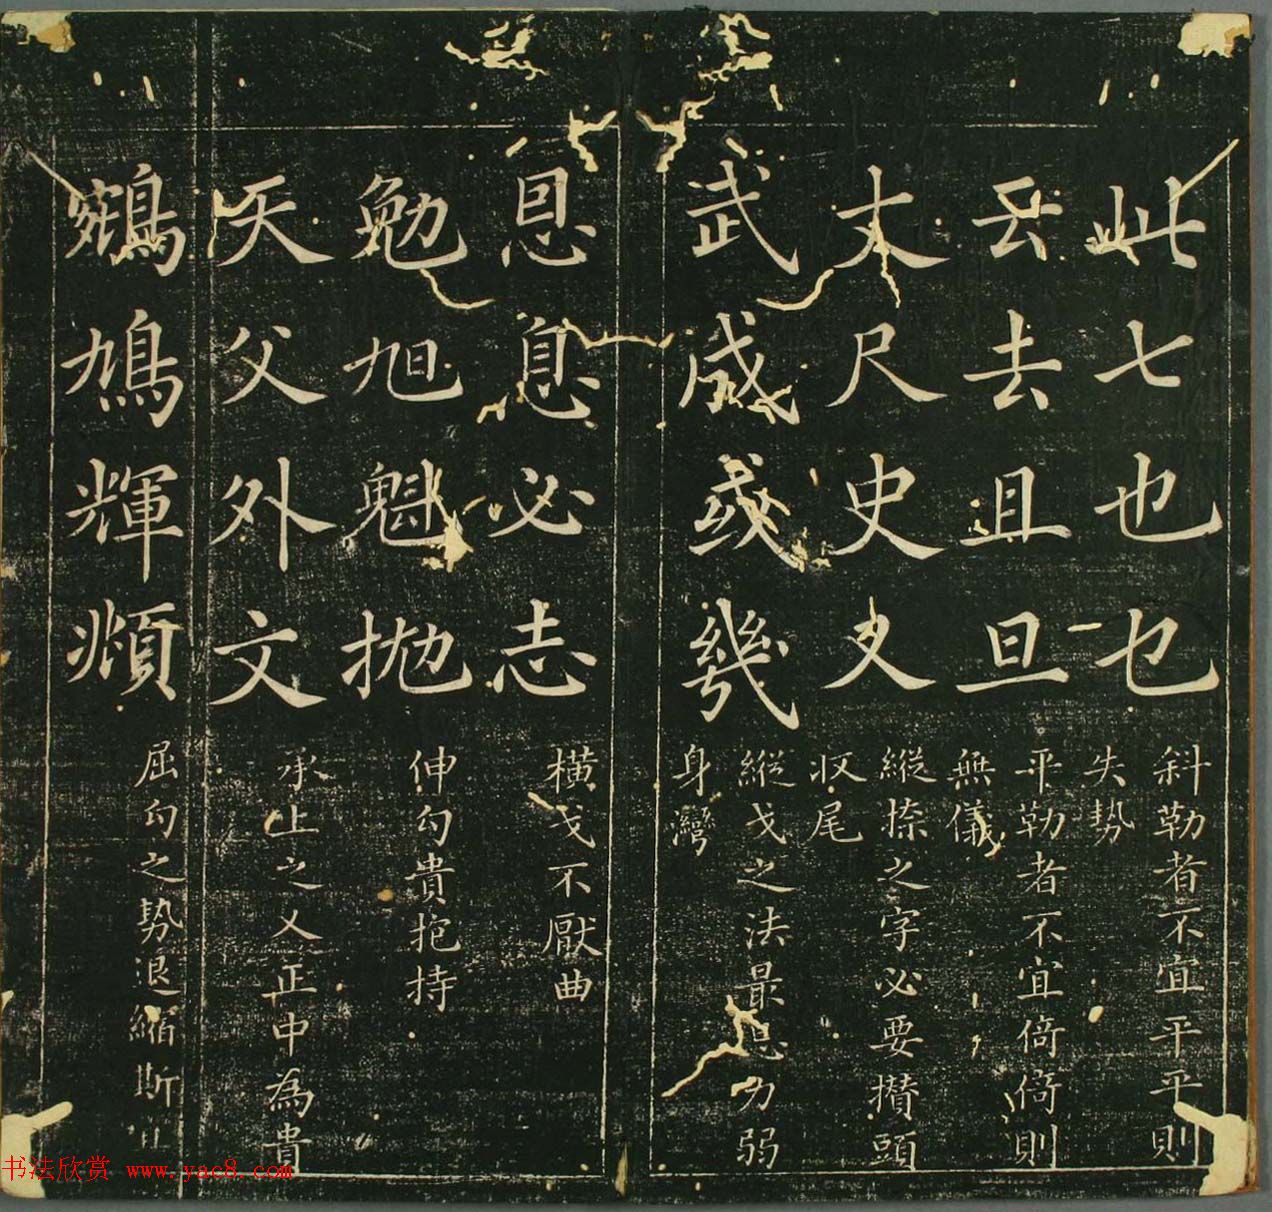 此七也乜
斜勒者不宜平平則
失勢
云去且旦
平勒者不宜倚倚則
無儀
丈尺史
縱捺之字必要攢頭
收尾
武成或幾
縱戈之法最忌力弱
身彎
恩息必志
橫戈不厭曲
勉旭魁拋
伸勾貴抱持
天父外文
承上之乂正中為貴
鵷鳩輝頫
屈勾之勢退縮斯宜
书法欣赏 www.yac8.com